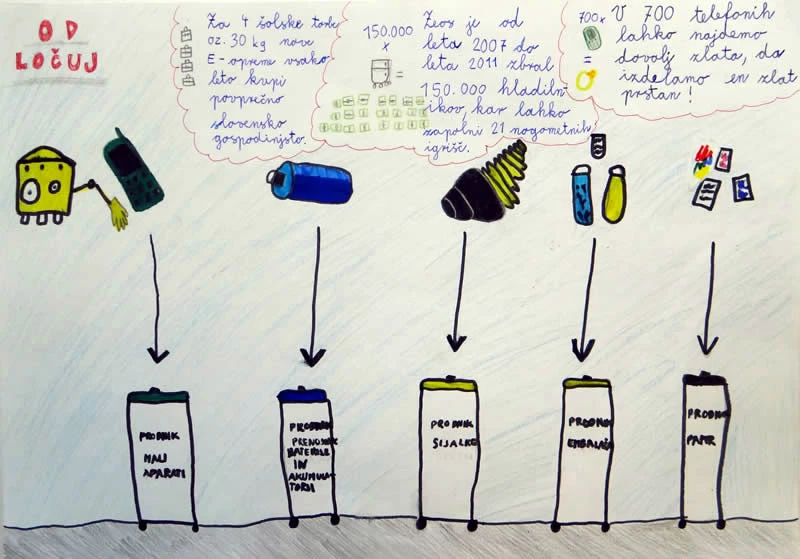 OD
LOČUJ
Za 4 šolske torbe
oz. 30 kg nove
E-opreme vsako
leto kupi
povprečno
slovensko
gospodinjstvo.
150.000
x
=
Zeos je od
leta 2007 do
leta 2011 zbral
150.000 hladiln-
ikov, kar lahko
zapolni 21 nogometnih
igrišč.
700x
=
V 700 telefonih
lahko najdemo
dovolj zlata, da
izdelamo en zlat
prstan!
PRODNIK
MALI
APARATI
PRODNIK
PRENOSNE
BATERIJE
IN
AKUMULA-
TORJI
PRODNIK
SIJALKE
PRODNIK
EMBALAŽA
PRODNIK
PAPIR